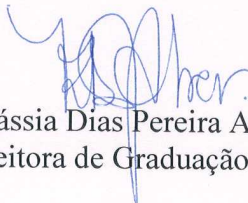 ássia Dias Pereira A
eitora de Graduação